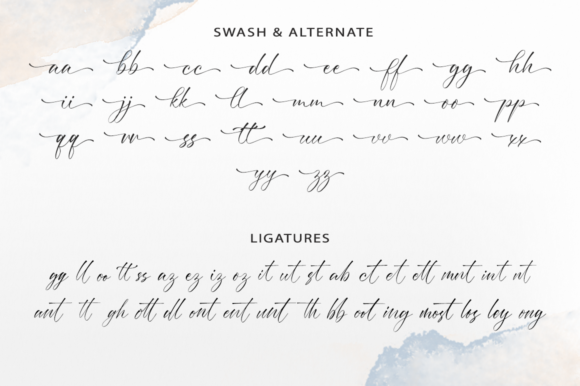 SWASH & ALTERNATE
aa bb cc dd ee ff gg hh
ii jj kk ll mm nn oo pp
qq rr ss tt uu vv ww xx
yy zz
LIGATURES
gg ll oo tt ss az ez iz oz it ut st ab ct et ett mnt int nt
ant tt gh ott dl ont ent unt th bb oot ing most los ley ong